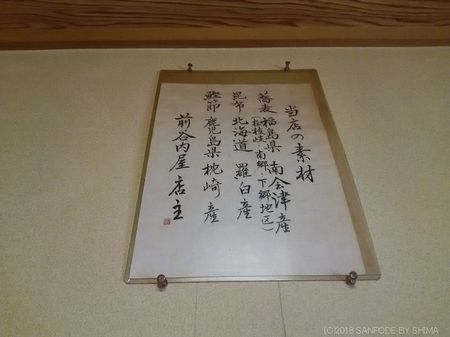 当店の素材
蕎麦 福島県 南会津産
(桧枝岐・南郷・下郷地区)
昆布 北海道 羅臼産
鰹節 鹿児島県 枕崎産
前谷内屋 店主
(C)2018 SANPODE BY SHIMA